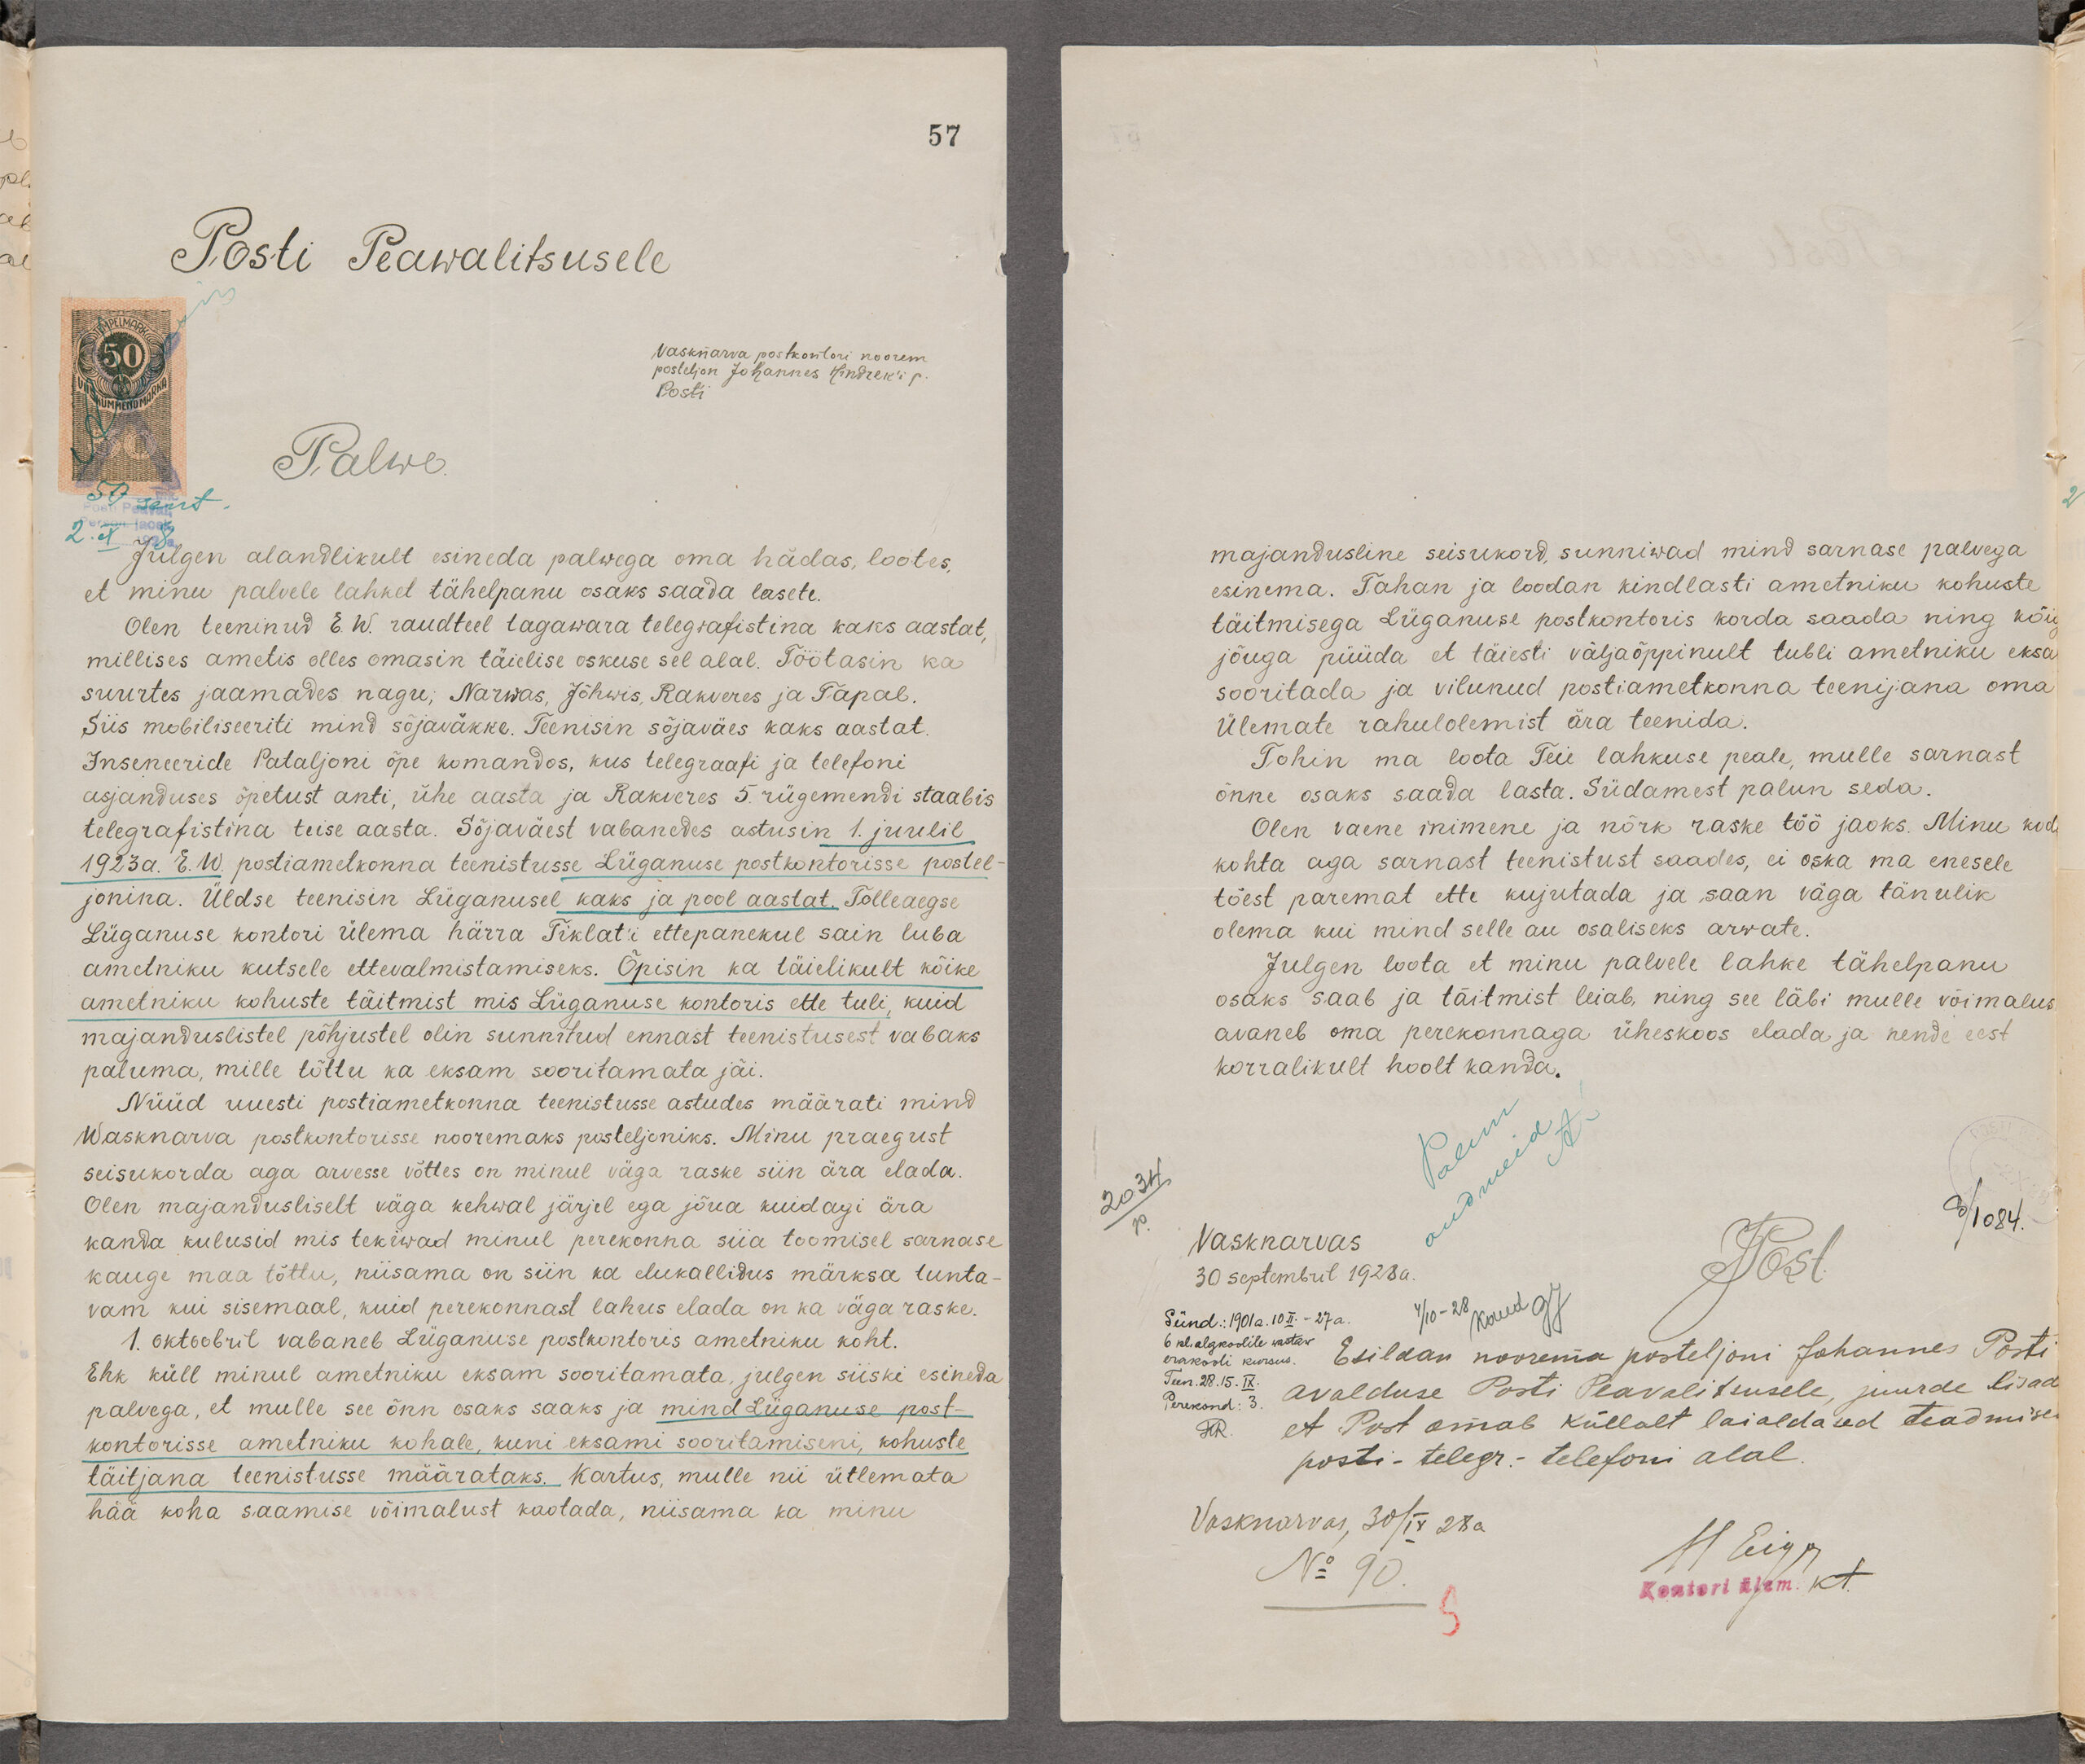 57
Posti Peawalitsusele
Vasknarva postkontori noorem
posteljon Johannes Hindrek'i p.
Posti
TEMPELMARK
50
VIISKÜMMEND MARKA
Palwe.
50 sent.
Posti Peaval.
2. X 28
Julgen alandlikult esineda palwega oma hädas, lootes,
et minu palvele lahket tähelpanu osaks saada lasete.
Olen teeninud E.W. raudteel tagawara telegrafistina kaks aastat,
millises ametis olles omasin täielise oskuse sel alal. Töötasin ka
suurtes jaamades nagu; Narwas, Jõhwis, Rakveres ja Tapal.
Siis mobiliseeriti mind sõjaväkke. Teenisin sõjaväes kaks aastat.
Inseneeride Pataljoni õpe komandos, kus telegraafi ja telefoni
asjanduses õpetust anti, ühe aasta ja Rakveres 5. rügemendi staabis
telegrafistina teise aasta. Sõjaväest vabanedes astusin 1. juulil
1923a. E.W. postiametkonna teenistusse Lüganuse postkontorisse postel-
jonina. Üldse teenisin Lüganusel kaks ja pool aastat. Tolleaegse
Lüganuse kontori ülema härra Tiklat'i ettepanekul sain luba
ametniku kutsele ettevalmistamiseks. Õpisin ka täielikult kõike
ametniku kohuste täitmist mis Lüganuse kontoris ette tuli, kuid
majanduslistel põhjustel olin sunnitud ennast teenistusest vabaks
paluma, mille tõttu ka eksam sooritamata jäi.
Nüüd uuesti postiametkonna teenistusse astudes määrati mind
Wasknarva postkontorisse nooremaks posteljoniks. Minu praegust
seisukorda aga arvesse võttes on minul väga raske siin ära elada.
Olen majandusliselt väga kehwal järjel ega jõua kuidagi ära
kanda kulusid mis tekiwad minul perekonna siia toomisel sarnase
kauge maa tõttu, niisama on siin ka elukallidus märksa tunta-
vam kui sisemaal, kuid perekonnast lahus elada on ka väga raske.
1. oktoobril vabaneb Lüganuse postkontoris ametniku koht.
Ehk küll minul ametniku eksam sooritamata, julgen siiski esineda
palvega, et mulle see õnn osaks saaks ja mind Lüganuse post-
kontorisse ametniku kohale, kuni eksami sooritamiseni, kohuste
täitjana teenistusse määrataks. Kartus, mulle nii ütlemata
hää koha saamise võimalust kaotada, niisama ka minu
majandusline seisukord, sunniwad mind sarnase palvega
esinema. Tahan ja loodan kindlasti ametniku kohuste
täitmisega Lüganuse postkontoris korda saada ning kõig
jõuga püüda et täiesti väljaõppinult tubli ametniku eksa
sooritada ja vilunud postiametkonna teenijana oma
Ülemate rahulolemist ära teenida.
Tohin ma loota Teie lahkuse peale, mulle sarnast
õnne osaks saada lasta. Südamest palun seda.
Olen vaene inimene ja nõrk raske töö jaoks. Minu kod
kohta aga sarnast teenistust saades, ei oska ma enesele
tõest paremat ette kujutada ja saan väga tänulik
olema kui mind selle au osaliseks arwate.
Julgen loota et minu palvele lahke tähelpanu
osaks saab ja täitmist leiab, ning see läbi mulle võimalus
avaneb oma perekonnaga üheskoos elada ja nende eest
korralikult hoolt kanda.
Palun
andmeid
2034
p.
1084.
Vasknarvas
30 septembril 1928a.
JPost.
4/10-28
Sünd.: 1901a. 10 II. - 27a.
6 kl. algkoolile vastav
erakooli kursus.
Teen. 28. 15. IX.
Perekond: 3.
Esildan noorema posteljoni Johannes Posti
avalduse Posti Peavalitsusele, juurde lisad
et Post omab küllalt laialdased teadmise
posti- telegr.- telefoni alal.
Vasknarvas, 30/IX 28a
№ 90.
Kontori ülem. kt.